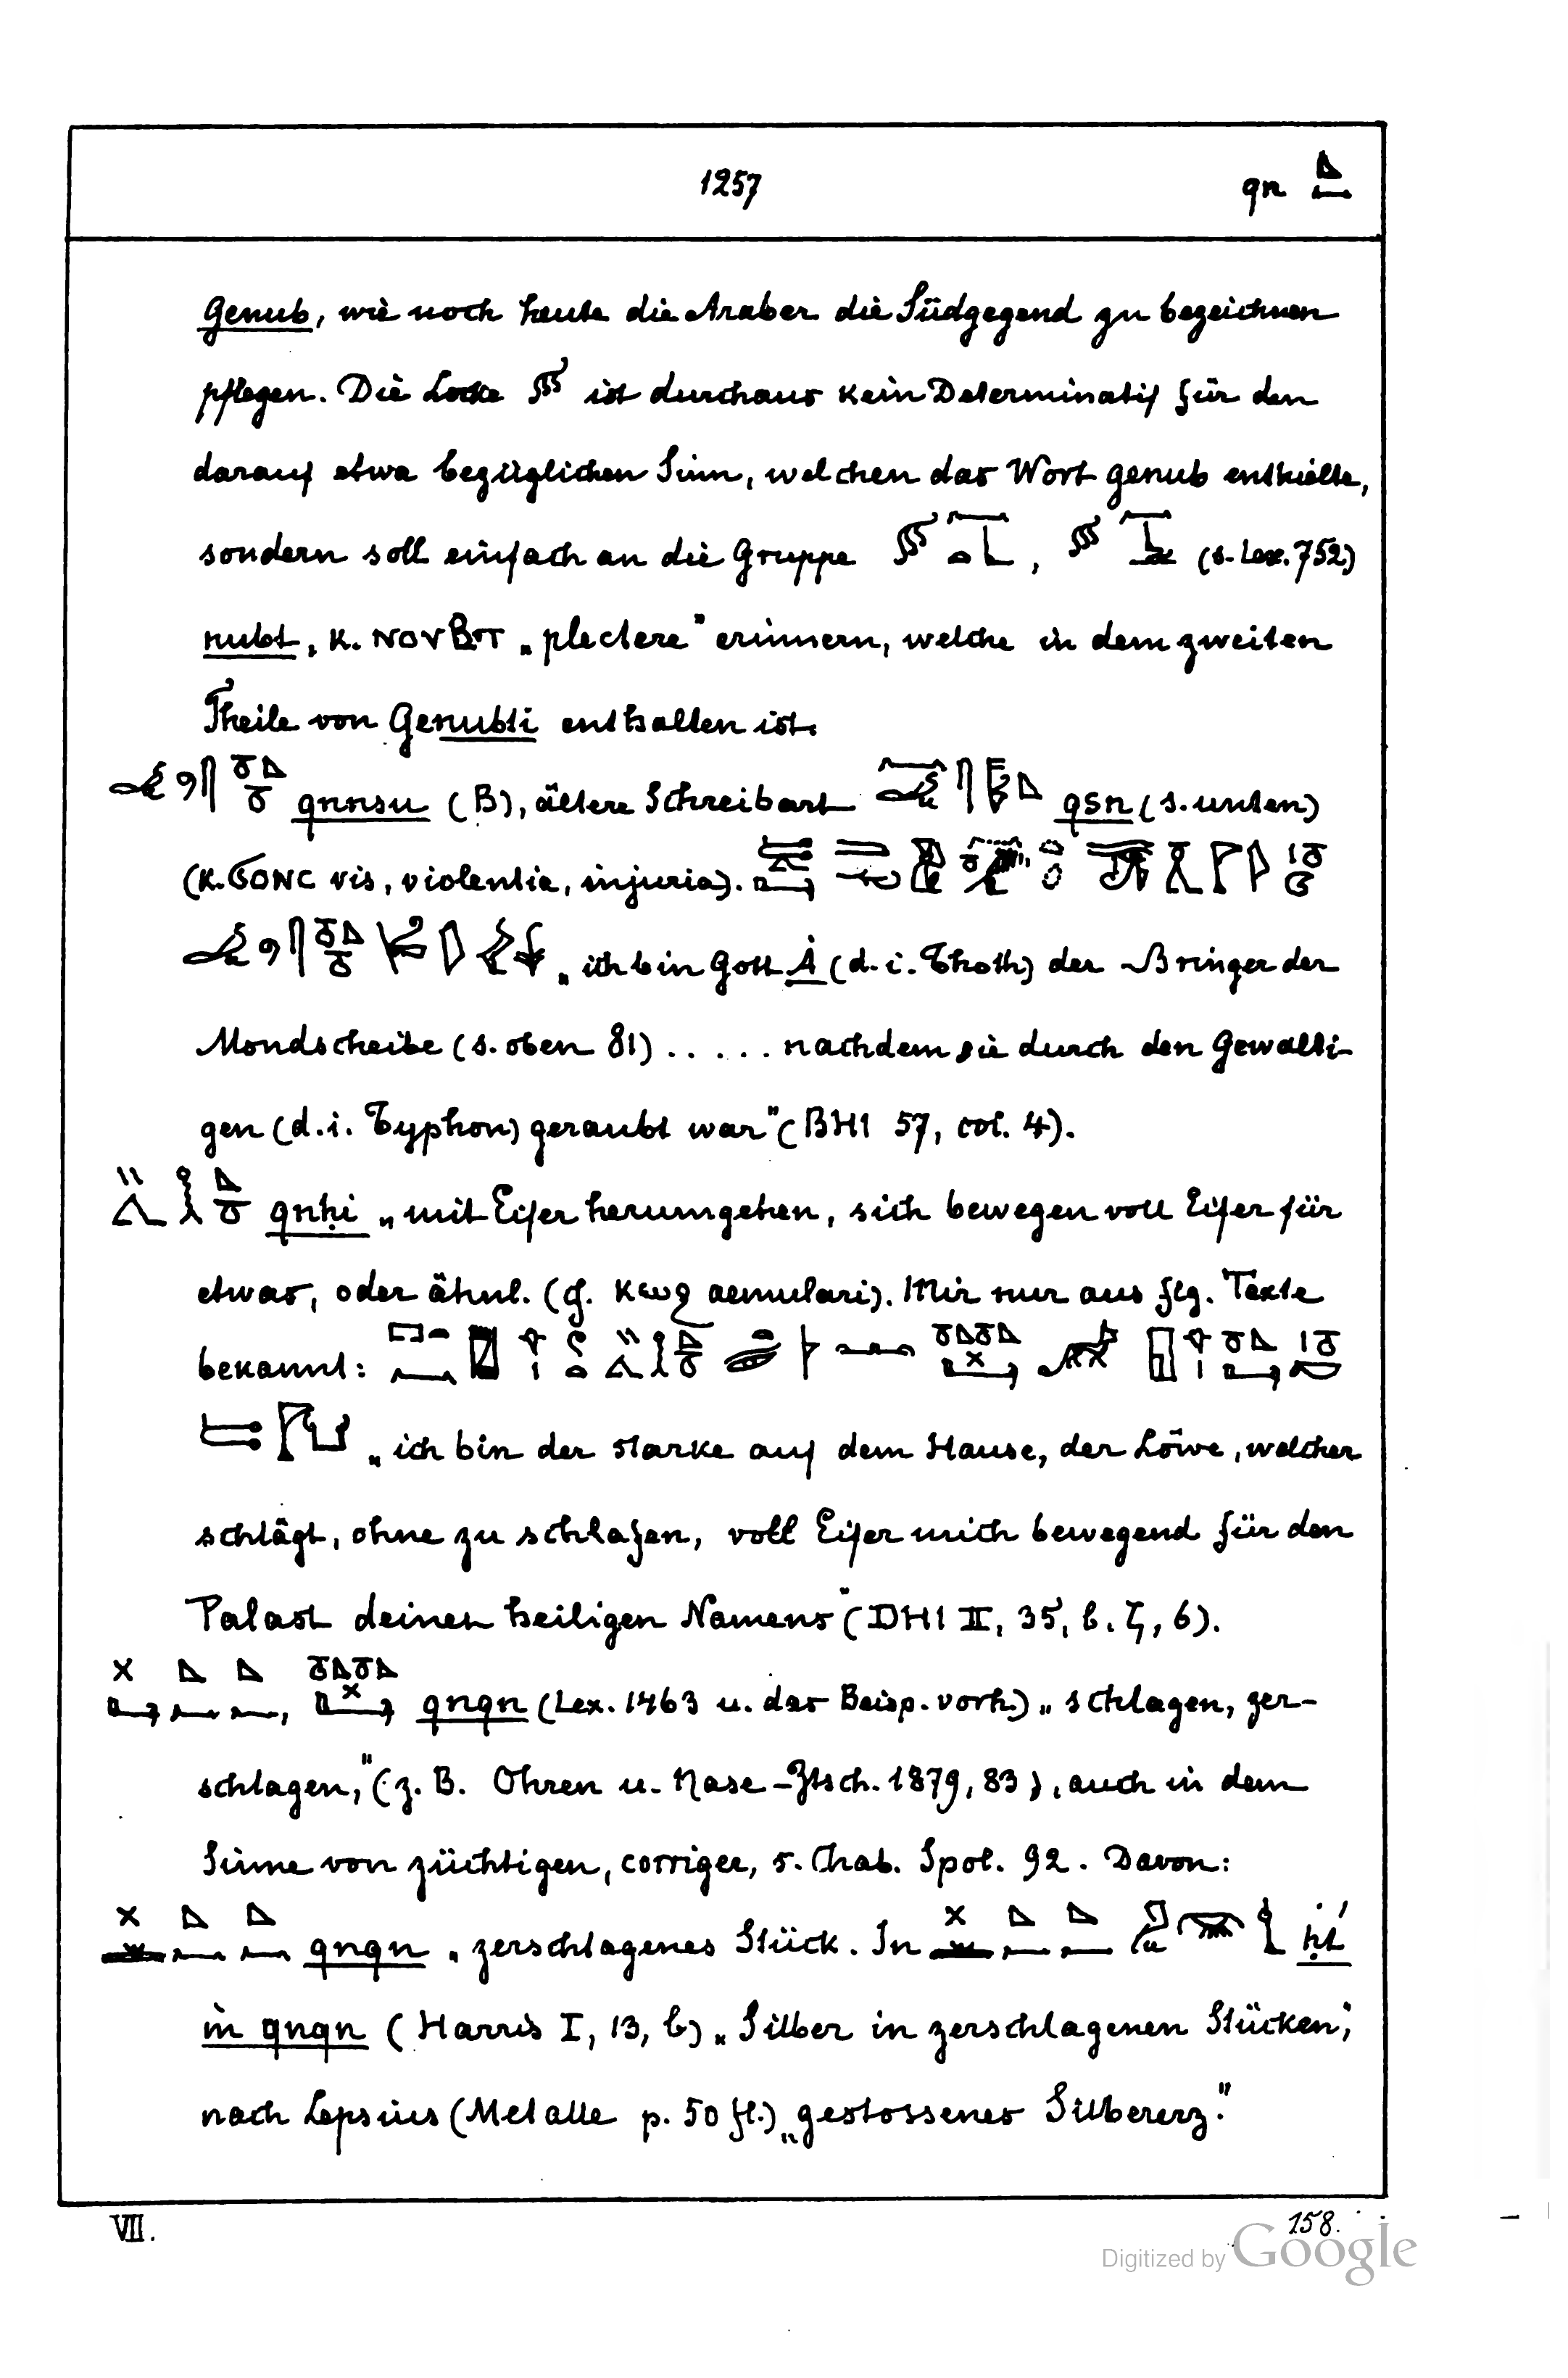 1257 qn
Genub, wie noch heute die Araber die Südgegend zu bezeichnen
pflegen. Die Locke ist durchaus kein Determinatif für den
darauf etwa bezüglichen Sinn, welchen das Wort genub enthielte,
sondern soll einfach an die Gruppe , (s. Lex. 752)
nubt, K. ⲚⲞⲨⲂⲦ „plectere" erinnern, welche in dem zweiten
Theile von Genubti enthalten ist.
qnnsu (B), ältere Schreibart qsn (s. unten)
(K. ϬⲞⲚⲤ vis, violentia, injuria).
„ich bin Gott Ȧ (d. i. Thoth) der Bringer der
Mondscheibe (s. oben 81) ..... nachdem sie durch den Gewalti-
gen (d. i. Typhon) geraubt war" (BHI 57, col. 4).
qnḥi „mit Eifer herumgehen, sich bewegen voll Eifer für
etwas, oder ähnl. (cf. ⲕⲱϩ aemulari). Mir nur aus flg. Texte
bekannt:
„ich bin der starke auf dem Hause, der Löwe, welcher
schlägt, ohne zu schlafen, voll Eifer mich bewegend für den
Palast deines heiligen Namens" (DHI II, 35, b. ζ, 6).
, qnqn (Lex. 1463 u. das Beisp. vorh.) „schlagen, zer-
schlagen," (z. B. Ohren u. Nase - Ztsch. 1879, 83), auch in dem
Sinne von züchtigen, corriger, s. Chab. Spol. 92. Davon:
qnqn „zerschlagenes Stück. In ḥt'
m qnqn (Harris I, 13, b) „Silber in zerschlagenen Stücken,"
nach Lepsius (Metalle p. 50 fl.) „gestossenes Silbererz."
VII. 158.
Digitized by Google